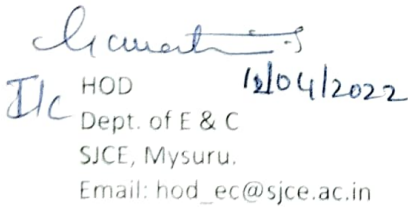 I/c HOD
Dept. of E & C
SJCE, Mysuru.
Email: hod_ec@sjce.ac.in